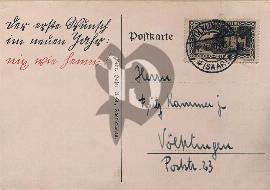 Der erste Wunsch
im neuen Jahr:
nix wie heim
Postkarte
(SAAR)
Herrn
Fritz Kammer jr
Völklingen
Poststr. 23